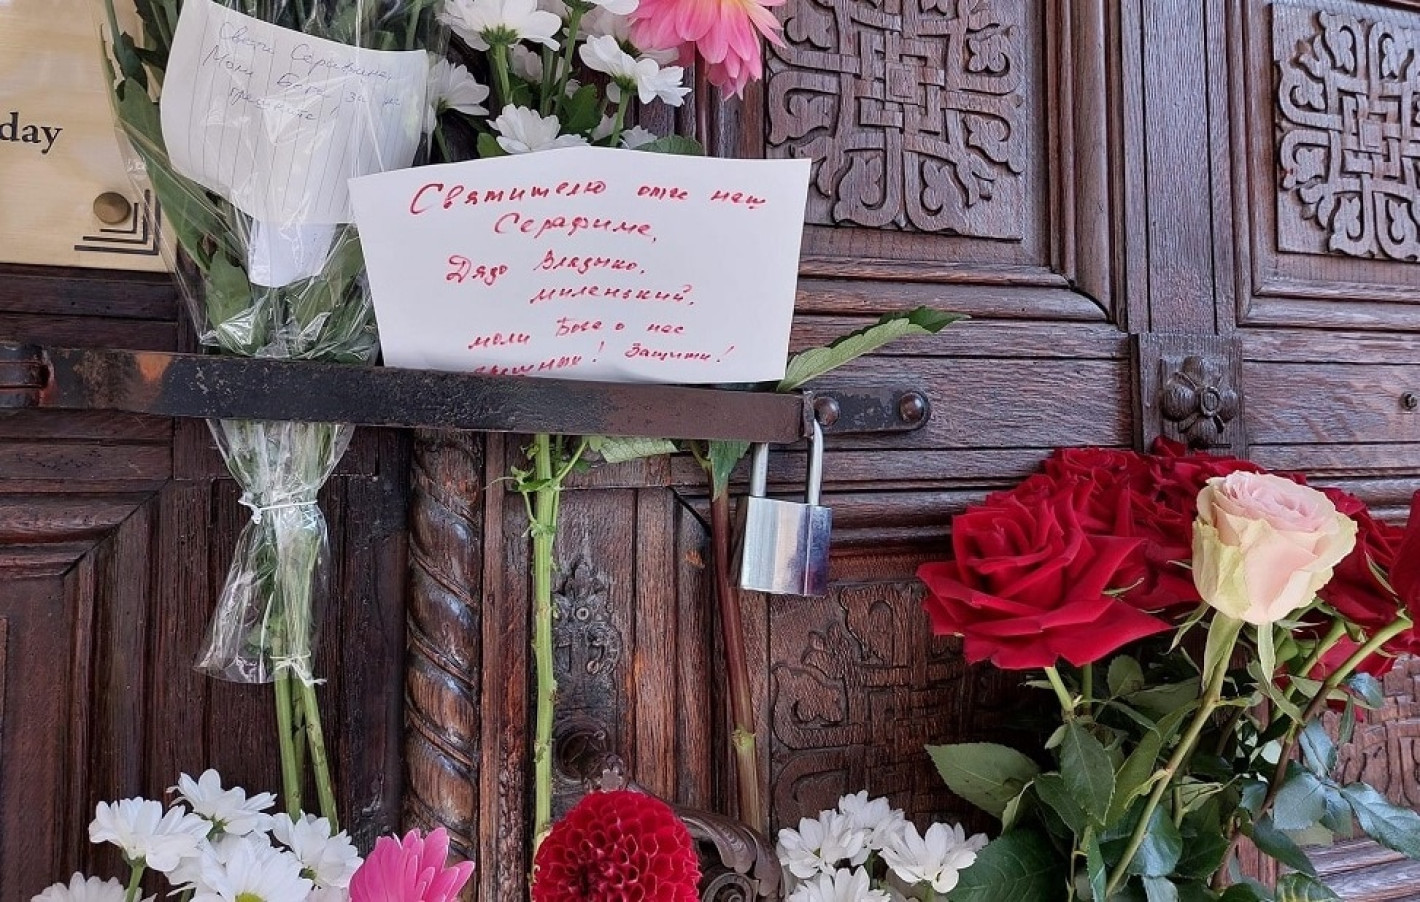 day
Свети Серафиме,
Моли Бога за нас
грешните!
Святителю отче наш
Серафиме,
Дядо Владыко,
миленький,
моли Бога о нас
грешных! Защити!